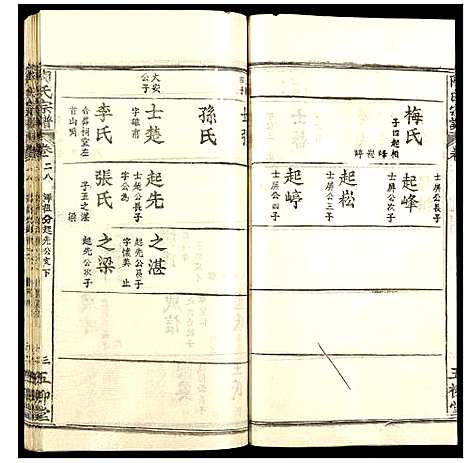 梅氏
子四起相
峰崧崞
起峰
士屏公長子
士屏公次子
起崧
士屏公三子
起崞
士屏公四子
孫氏
士楚
字雍甫
大安
公子
李氏
首山嘴
起先
士楚公長子
字公為
張氏
子二之湛
梁
之湛
起先公長子
字懷英
之梁
起先公次子
陶氏宗譜
卷二八
起先公支下
三
五柳堂